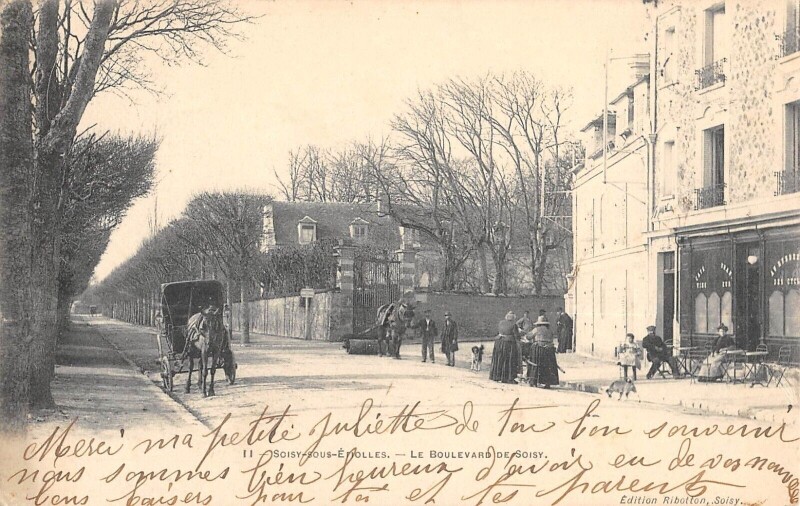 Merci ma petite Juliette de ton bon souvenir
11 — SOISY-SOUS-ÉTIOLLES. — LE BOULEVARD DE SOISY.
nous sommes bien heureux d'avoir eu de vos nouvelles
bons baisers pour toi et tes parents
Édition Ribotton, Soisy.